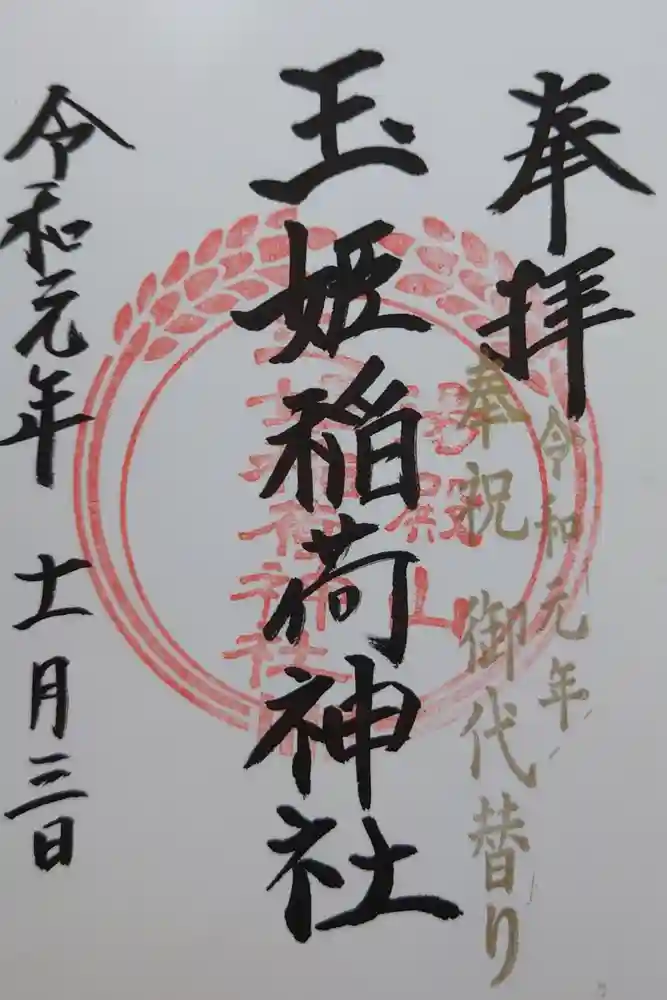 奉拝
令和元年
奉祝 御代替り
玉姫稲荷神社
令和元年 十一月三日